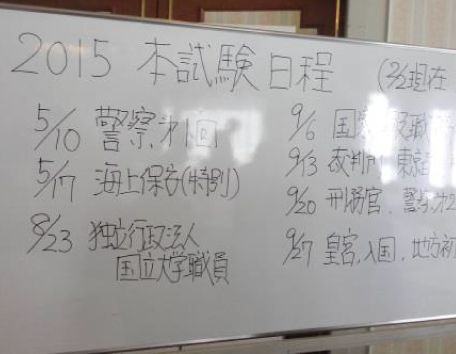 2015 本試験日程 (2/2現在
5/10 警察才1回
5/17 海上保安(特別)
8/23 独立行政法人
国立大学職員
9/6 国家
9/13 裁判所, 東京
9/20 刑務官, 警察才2
9/27 皇宮, 入国, 地方初